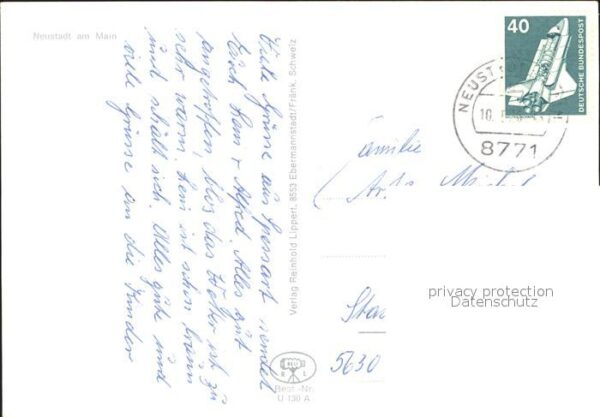 Neustadt am Main
Viele Grüsse aus Spessart sendet
Euch Leni + Alfred. Alles gut
angetroffen, blos das Wetter ist zu
sehr warm. Leni ist schon braun
und schält sich. Alles gute und
viele Grüsse an die Kinder
Verlag Reinhold Lippert, 8553 Ebermannstadt/Fränk. Schweiz
Best.-Nr.
U 130 A
40
DEUTSCHE BUNDESPOST
NEUST
10.
8771
Familie
5630
privacy protection
Datenschutz